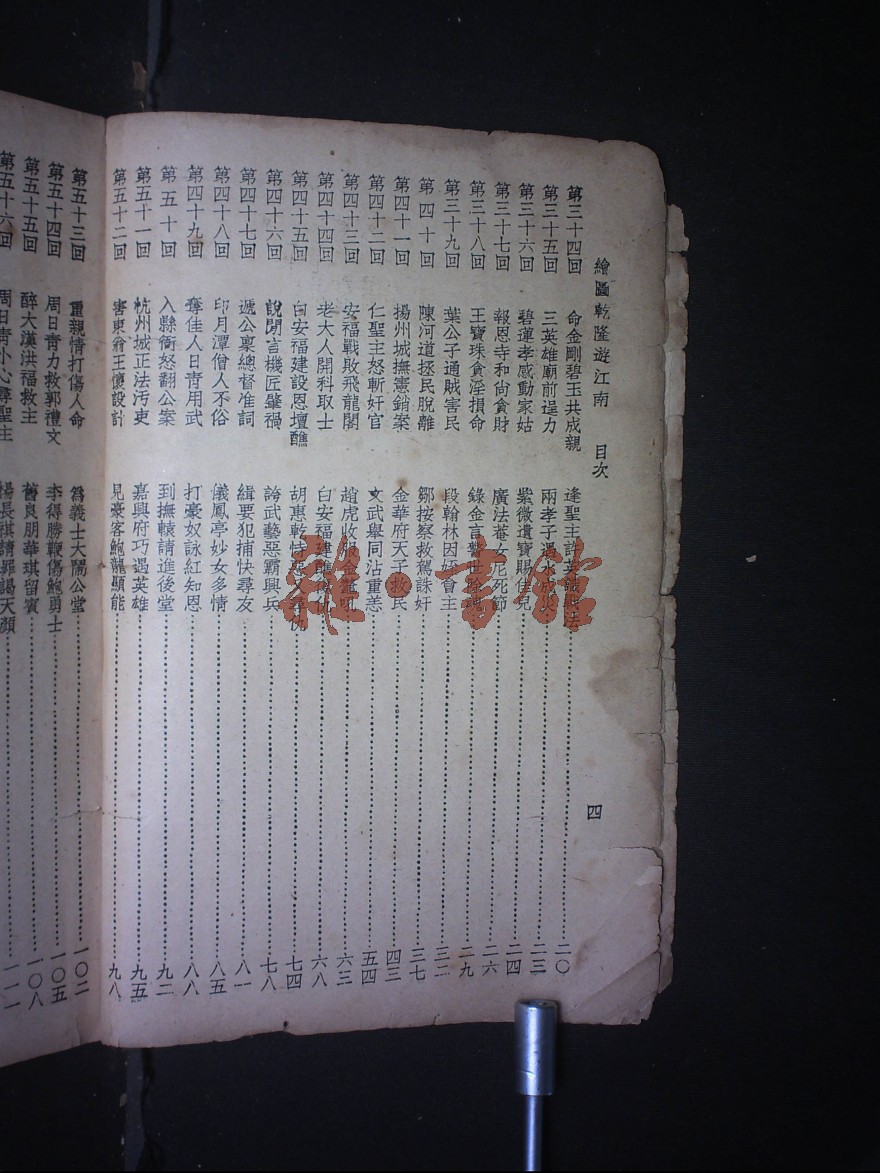 繪圖乾隆遊江南 目次 四
第三十四回 命金剛碧玉共成親 逢聖主許英鐵興法 二〇
第三十五回 三英雄廟前逞力 兩孝子遇水成災 二三
第三十六回 碧蓮孝感動家姑 紫微遺寶賜佳兒 二四
第三十七回 報恩寺和尚貪財 廣法菴女尼死節 二六
第三十八回 王寶珠貪淫損命 錄金言警世 二九
第三十九回 葉公子通賊害民 段翰林因姪會主 三二
第四十回 陳河道拯民脫離 鄒按察救駕誅奸 三七
第四十一回 揚州城撫憲銷案 金華府天子救民 四三
第四十二回 仁聖主怒斬奸官 文武舉同沾重恙 五四
第四十三回 安福戰敗飛龍閣 趙虎收服金鰲吼 六三
第四十四回 老大人開科取士 白安福建醮 六八
第四十五回 白安福建設恩壇醮 胡惠乾恃惡又尋仇 七四
第四十六回 說閒言機匠肇禍 誇武藝惡霸興兵 七八
第四十七回 遞公稟總督准詞 緝要犯捕快尋友 八一
第四十八回 印月潭僧人不俗 儀鳳亭妙女多情 八五
第四十九回 奪佳人日青用武 打豪奴詠紅知恩 八八
第五十回 入縣衙怒翻公案 到撫轅請進後堂 九二
第五十一回 杭州城正法汚吏 嘉興府巧遇英雄 九五
第五十二回 害東翁王懷設計 見豪客鮑龍顯能 九八
第五十三回 重親情打傷人命 爲義士大鬧公堂 一〇二
第五十四回 周日青力救郭禮文 李得勝鞭傷鮑勇士 一〇五
第五十五回 醉大漢洪福救主 舊良朋華琪留賓 一〇八
第五十六回 周日青小心尋聖主 楊長祺請罪謁天顏 一一一
雅·書館